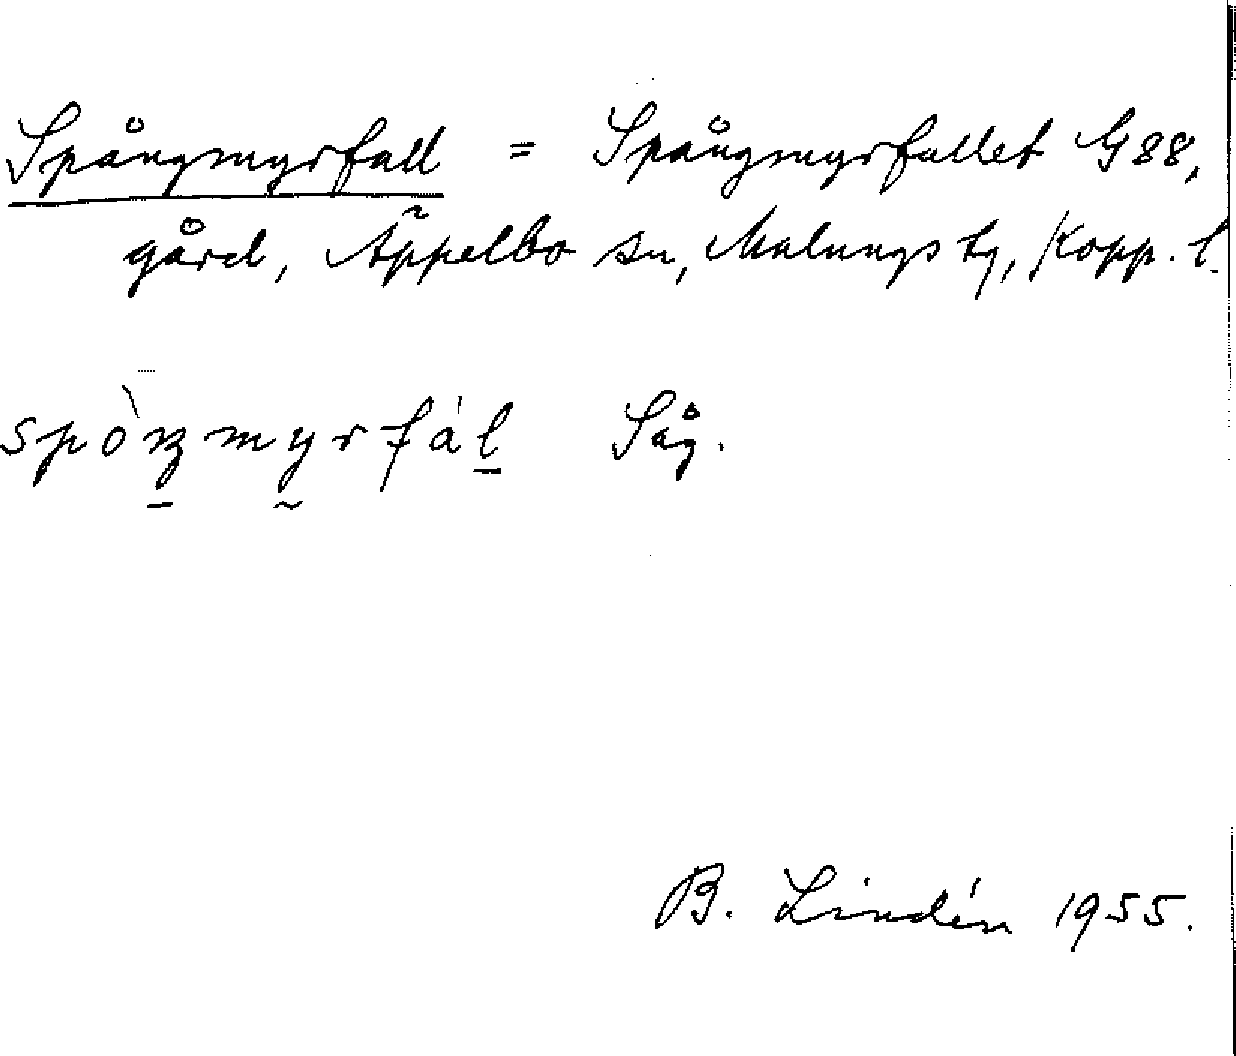 Spångmyrfall = Spångmyrfallet G88,
gård, Äppelbo sn, Malungs tg, Kopp. l.
spòŋmyrfál Såg.
B. Lindén 1955.